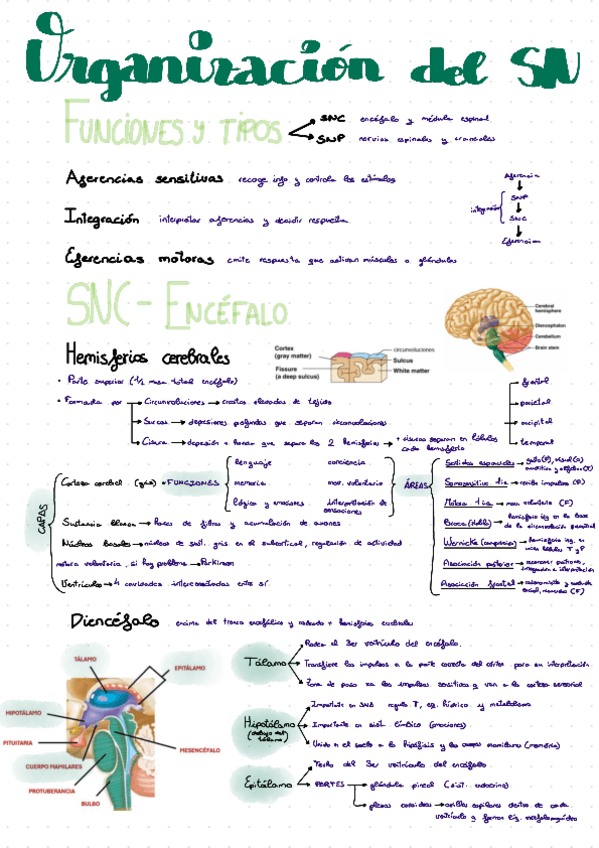 Organización del SN
FUNCIONES Y TIPOS
SNC encéfalo y médula espinal
SNP nervios espinales y craneales
Aferencias sensitivas recoge info y controla los estímulos
Integración interpretar aferencias y decidir respuesta
Eferencias motoras emite respuesta que activan músculos o glándulas
Aferencia
SNP
integración
SNC
Eferencia
SNC - ENCÉFALO
Cerebral hemisphere
Diencephalon
Cerebellum
Brain stem
Hemisferios cerebrales
Cortex (gray matter)
Fissure (a deep sulcus)
circunvoluciones
Sulcus
White matter
• Parte superior (1/2 masa total encéfalo)
• Formada por → Circunvoluciones → crestas elevadas de tejido
Surcos → depresiones profundas que separan circunvoluciones
Cisura → depresión + honda que separa los 2 hemisferios → + cisuras separan en lóbulos cada hemisferio
frontal
parietal
occipital
temporal
CAPAS
Corteza cerebral (gris) → FUNCIONES
lenguaje
memoria
lógica y emociones
conciencia
mov. voluntario
interpretación de sensaciones
Sustancia blanca → haces de fibras y acumulación de axones
Núcleos basales → núcleos de sust. gris en el subcortical, regulación de actividad
motora voluntaria, si hay problema → Parkinson
Ventrículos → 4 cavidades interconectadas entre sí.
ÁREAS
Sentidos especiales →
Somasensitiva 1ia → recibe impulsos (P)
Motora 1ia → mov. voluntario (F)
Broca (habla) → hemisferio izq en la base
Wernicke (comprensión) → hemisferio izq. en
Asociación posterior →
Asociación frontal →
Diencéfalo encima del tronco encefálico y rodeado x hemisferios cerebrales
TÁLAMO
EPITÁLAMO
HIPOTÁLAMO
PITUITARIA
MESENCÉFALO
CUERPO MAMILARES
PROTUBERANCIA
BULBO
Tálamo
Rodea el 3er ventrículo del encéfalo.
Transfiere los impulsos a la parte correcta del córtex para su interpretación.
Zona de paso xa los impulsos sensitivos q van a la corteza sensorial
Hipotálamo
(debajo del tálamo)
Importante en SNA regula T, eq. hídrico y metabolismo
Importante en sist. límbico (emociones).
Unido en el suelo a la hipófisis y los cuerpos mamilares (memoria)
Epitálamo
Techo del 3er ventrículo del encéfalo
PARTES → glándula pineal (sist. endocrino)
plexos coroideos → ovillos capilares dentro de cada
ventrículo q forma líq. encefaloraquídeo